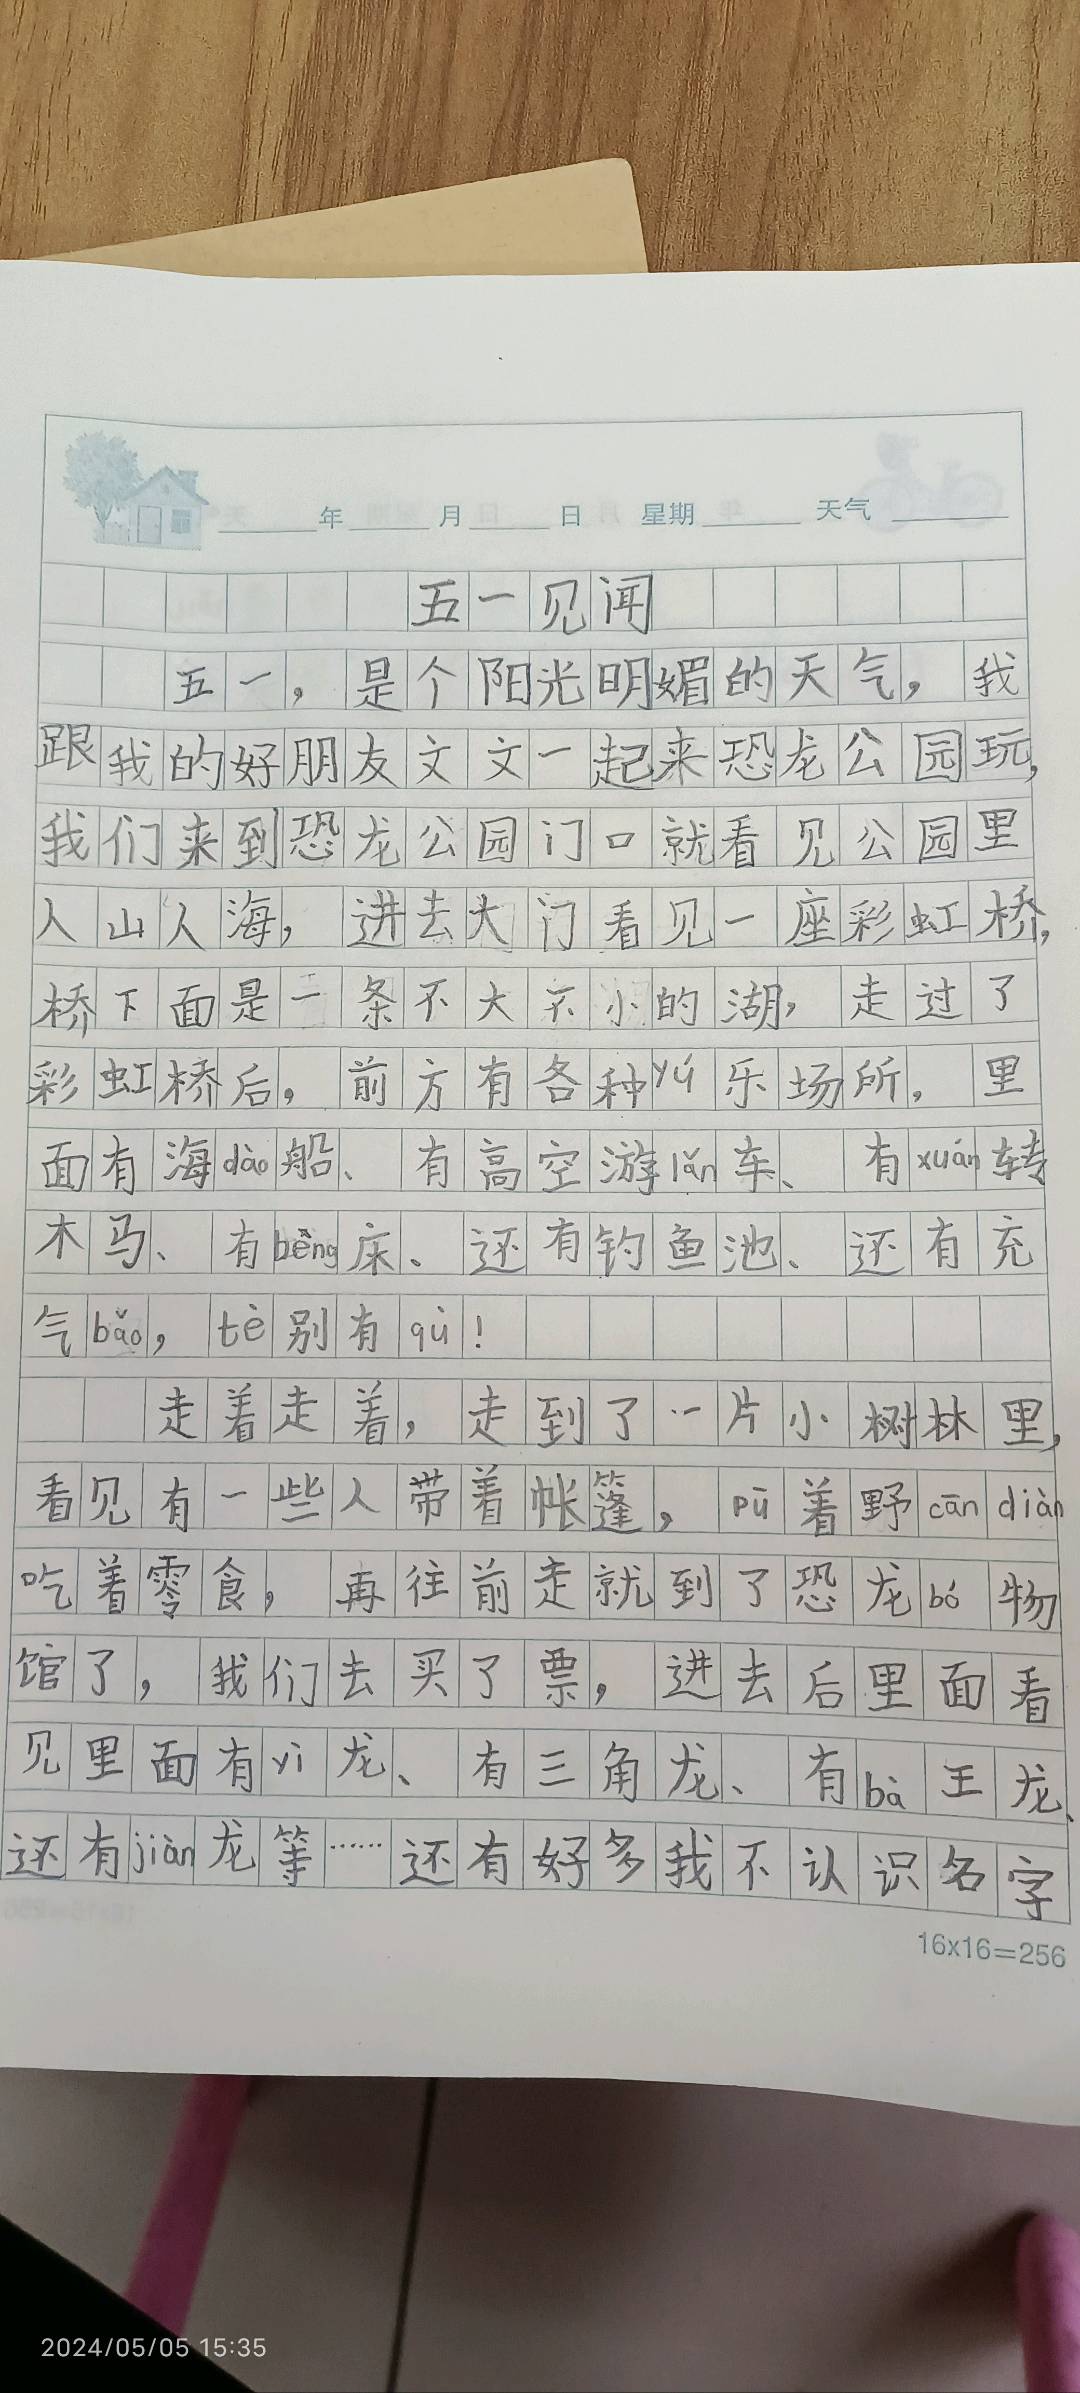 年 月 日 星期 天气
五一见闻
五一，是个阳光明媚的天气，我
跟我的好朋友文文一起来恐龙公园玩，
我们来到恐龙公园门口就看见公园里
人山人海，进去大门看见一座彩虹桥，
桥下面是一条不大不小的湖，走过了
彩虹桥后，前方有各种yú乐场所，里
面有海dào船、有高空游lǎn车、有xuán转
木马、有bèng床、还有钓鱼池、还有充
气bǎo，tè别有qù！
走着走着，走到了一片小树林里，
看见有一些人带着帐篷，pū着野cān diàn
吃着零食，再往前走就到了恐龙bó物
馆了，我们去买了票，进去后里面看
见里面有yì龙、有三角龙、有bà王龙、
还有jiàn龙等……还有好多我不认识名字
16x16=256
2024/05/05 15:35